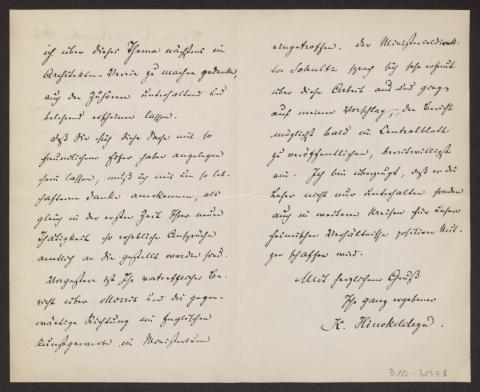 ich über dieses Thema nächstens im
Architekten-Verein zu machen gedenke,
auch den Zuhörern unterhaltend und
belehrend erscheinen lassen.
Daß Sie sich diese Sache mit so
freundlichem Eifer haben angelegen
sein lassen, muß ich mit um so leb-
hafterem Danke anerkennen, als
gleich in der ersten Zeit Ihrer neuen
Thätigkeit so erhebliche Ansprüche
amtlich an Sie gestellt worden sind.
Vorgestern ist Ihr vortrefflicher Be-
richt über Morris und die gegen-
wärtige Richtung im Englischen
Kunstgewerbe im Ministerium
eingetroffen. Der Ministerialdirek-
tor Schultz sprach sich sehr erfreut
über diese Arbeit aus und ging
auf meinen Vorschlag, den Bericht
möglichst bald im Centralblatt
zu veröffentlichen, bereitwilligst
ein. Ich bin überzeugt, daß er die
Leser nicht nur unterhalten sondern
auch in weiteren Kreisen für unsere
heimischen Verhältnisse positiven Nut-
zen schaffen wird.
Mit herzlichem Gruß
Ihr ganz ergebener
K. Hinckeldeyn.
D 102-2034 B